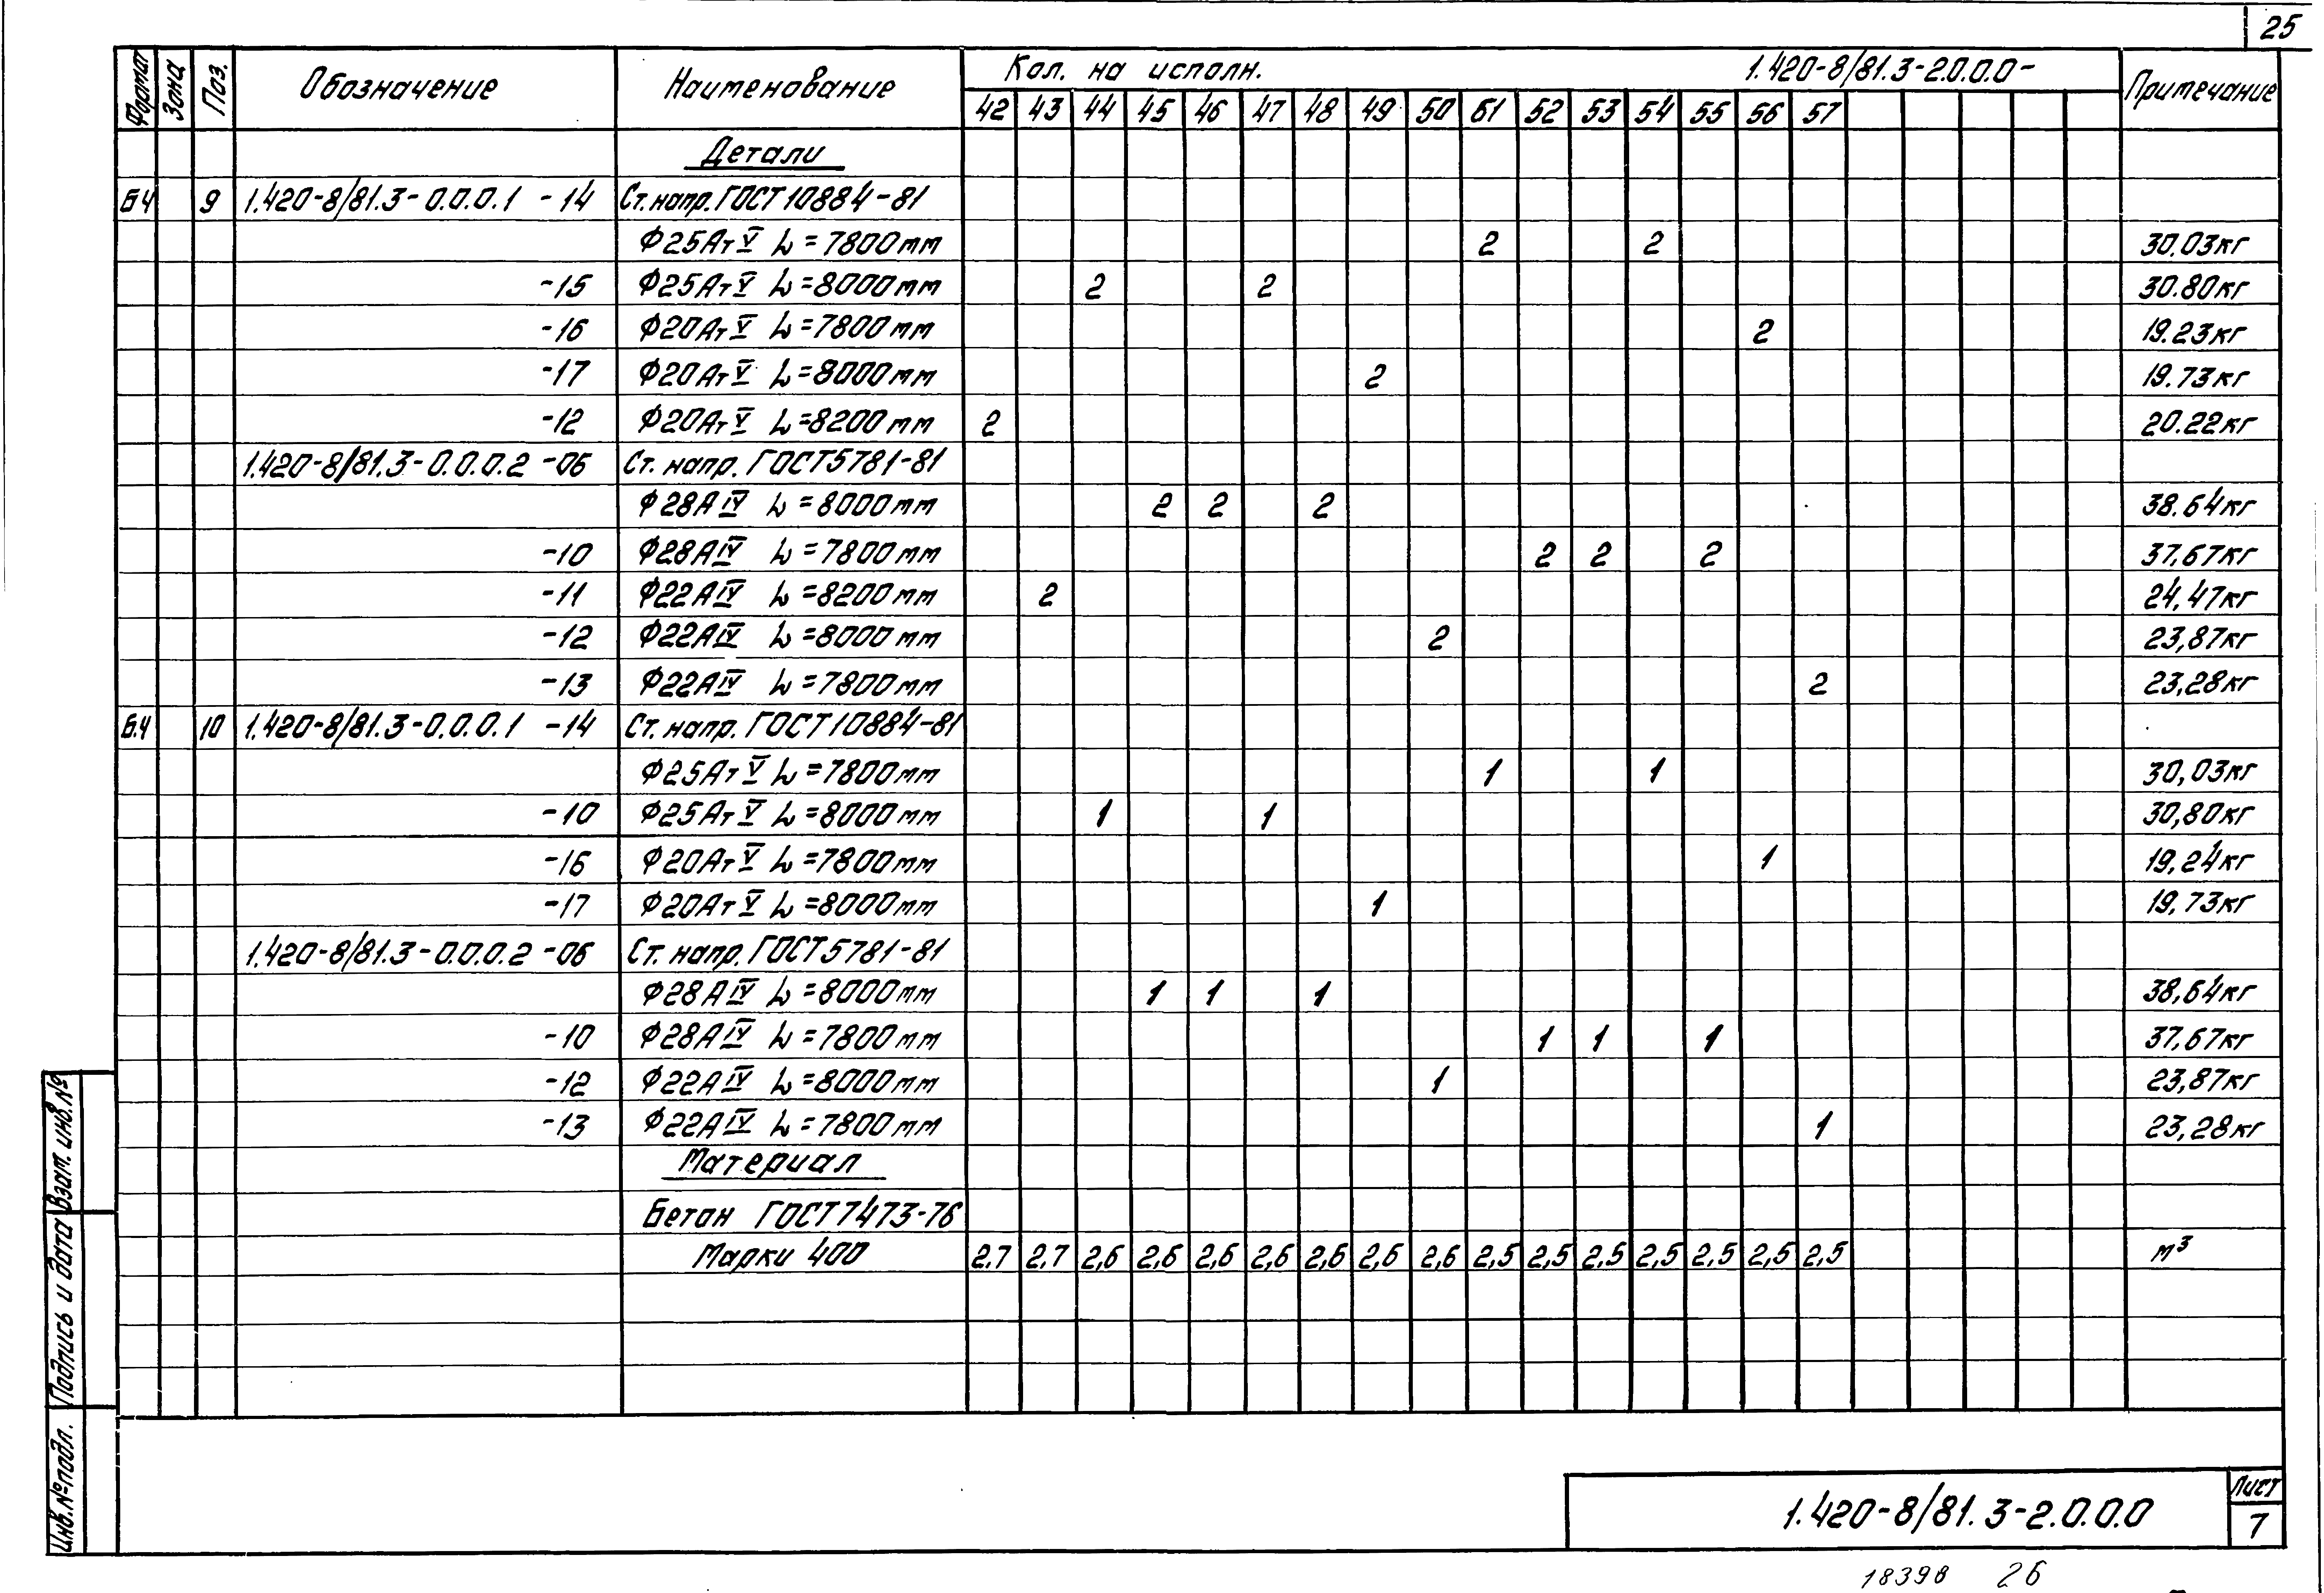 25
Формат Зона Поз. Обозначение Наименование Кол. на исполн. 1.420-8/81.3-2.0.0.0- Примечание
42 43 44 45 46 47 48 49 50 51 52 53 54 55 56 57
Детали
БЧ 9 1.420-8/81.3-0.0.0.1 -14 Ст. напр. ГОСТ 10884-81
Ф25АтV L=7800мм 2 2 30.03кг
-15 Ф25АтV L=8000мм 2 2 30.80кг
-16 Ф20АтV L=7800мм 2 19.23кг
-17 Ф20АтV L=8000мм 2 19.73кг
-12 Ф20АтV L=8200мм 2 20.22кг
1.420-8/81.3-0.0.0.2 -06 Ст. напр. ГОСТ 5781-81
Ф28АIV L=8000мм 2 2 2 38.64кг
-10 Ф28АIV L=7800мм 2 2 2 37,67кг
-11 Ф22АIV L=8200мм 2 24,47кг
-12 Ф22АIV L=8000мм 2 23,87кг
-13 Ф22АIV L=7800мм 2 23,28кг
Б.Ч 10 1.420-8/81.3-0.0.0.1 -14 Ст. напр. ГОСТ 10884-81
Ф25АтV L=7800мм 1 1 30,03кг
-10 Ф25АтV L=8000мм 1 1 30,80кг
-16 Ф20АтV L=7800мм 1 19,24кг
-17 Ф20АтV L=8000мм 1 19,73кг
1.420-8/81.3-0.0.0.2 -06 Ст. напр. ГОСТ 5781-81
Ф28АIV L=8000мм 1 1 1 38,64кг
-10 Ф28АIV L=7800мм 1 1 1 37,67кг
-12 Ф22АIV L=8000мм 1 23,87кг
-13 Ф22АIV L=7800мм 1 23,28кг
Материал
Бетон ГОСТ 7473-76
Марки 400 2,7 2,7 2,6 2,6 2,6 2,6 2,6 2,6 2,6 2,5 2,5 2,5 2,5 2,5 2,5 2,5 м³
Инв.№подл. Подпись и дата Взам. инв.№
1.420-8/81.3-2.0.0.0
Лист
7
18398 26